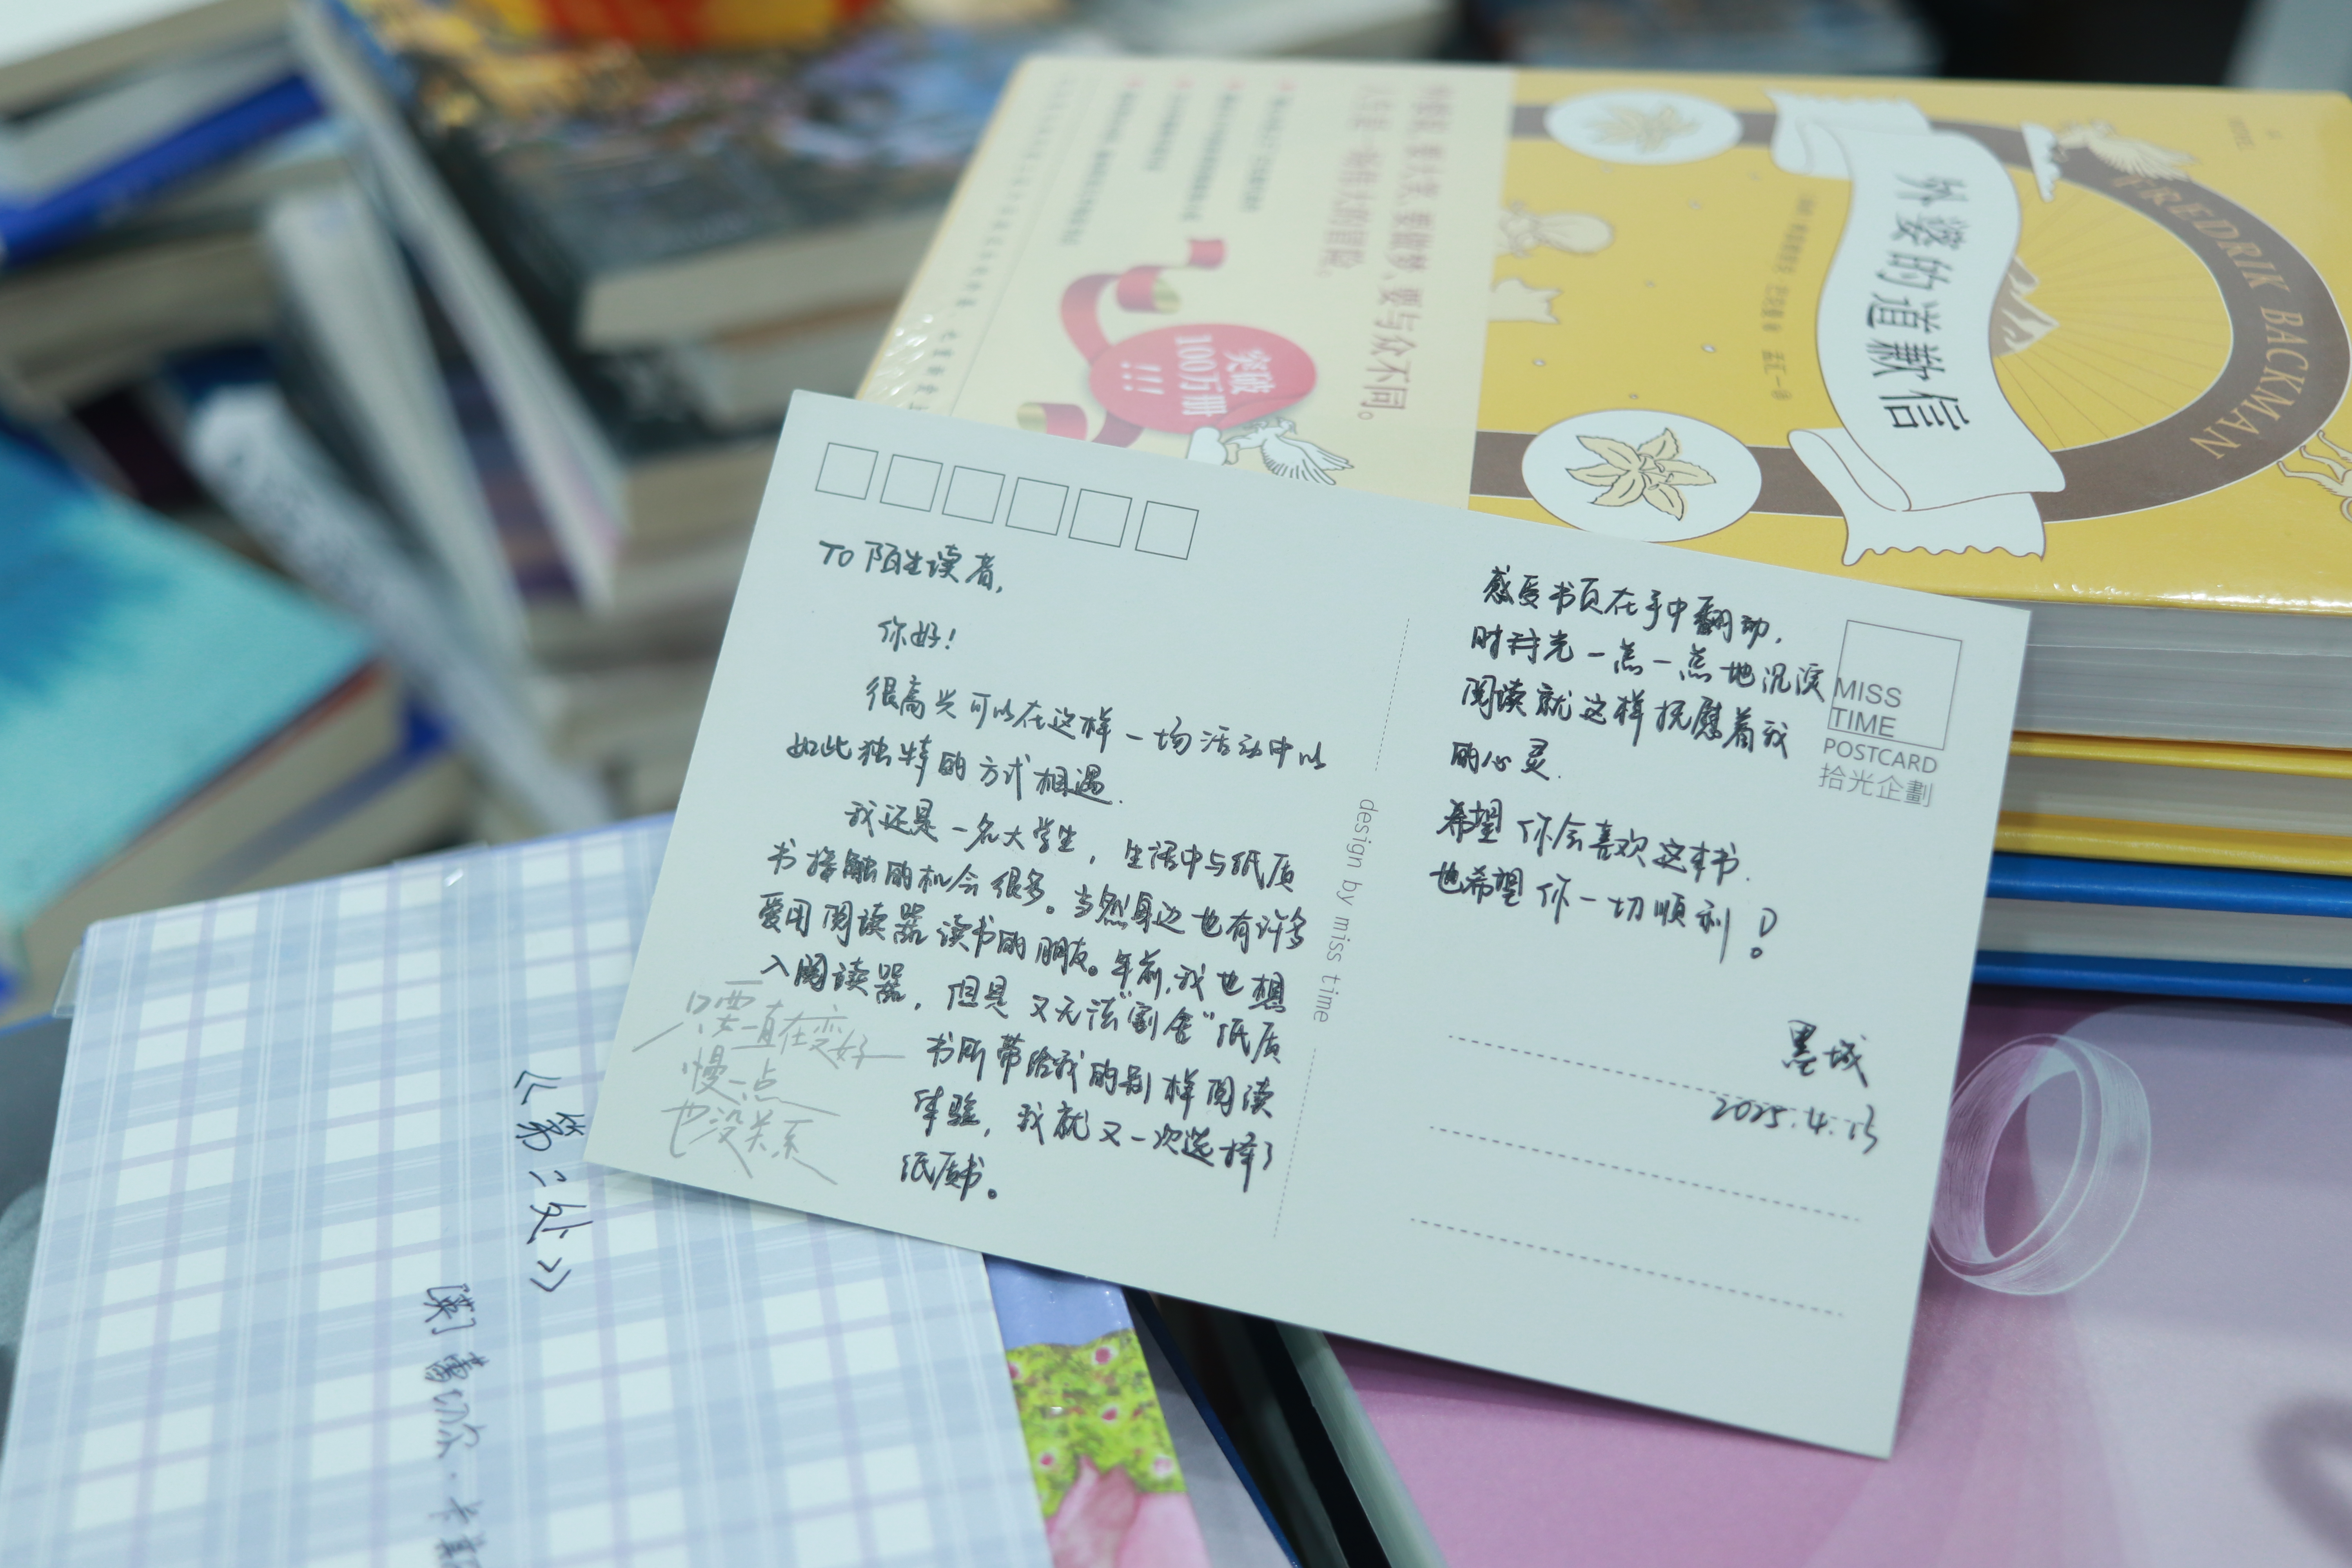 外婆的道歉信
FREDRIK BACKMAN
要大笑,要做梦,要与众不同。
人生是一场伟大的冒险。
突破
100万册
!!!
TO 陌生读者,
你好!
很高兴可以在这样一场活动中以
如此独特的方式相遇.
我还是一名大学生,生活中与纸质
书接触的机会很多。当然身边也有许多
爱用阅读器读书的朋友。年前,我也想
入阅读器,但是又无法"割舍"纸质
书所带给我的别样阅读
体验,我就又一次选择了
纸质书。
只要一直在变好
慢一点
也没关系
design by miss time
感受书页在手中翻动,
时光一点一点地沉淀
阅读就这样抚慰着我
的心灵.
希望你会喜欢这本书.
也希望你一切顺利!
墨城
2025.4.13
MISS
TIME
POSTCARD
拾光企劃
《第二处》
[英]蕾切尔·卡斯克